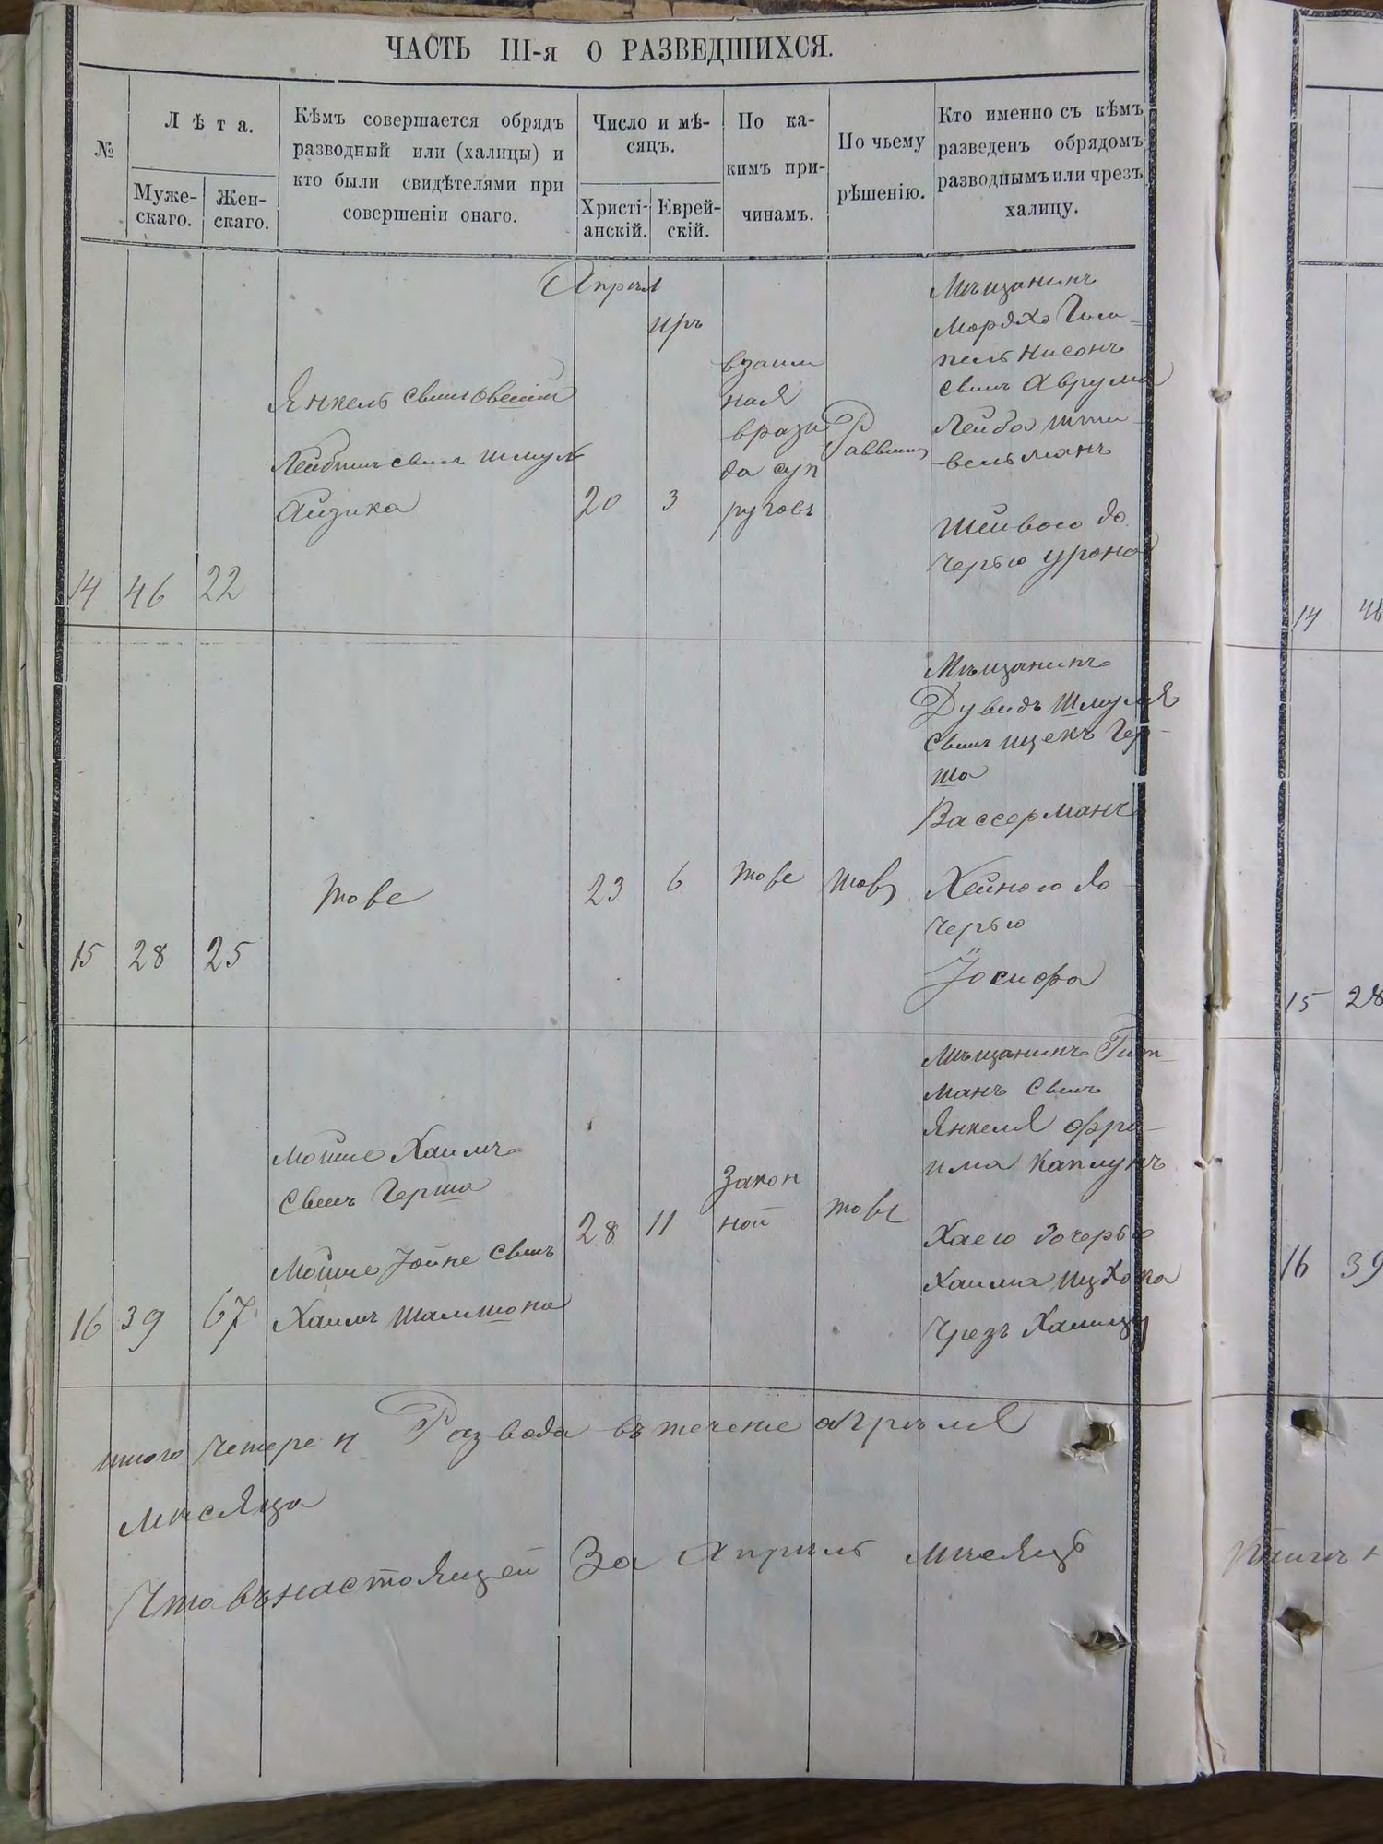 ЧАСТЬ III-я О РАЗВЕДШИХСЯ.
№
Лѣта.
Муже-
скаго.
Жен-
скаго.
Кѣмъ совершается обрядъ
разводный или (халицы) и
кто были свидѣтелями при
совершеніи онаго.
Число и мѣ-
сяцъ.
Христі-
анскій.
Еврей-
скій.
По ка-
кимъ при-
чинамъ.
По чьему
рѣшенію.
Кто именно съ кѣмъ
разведенъ обрядомъ
разводнымъ или чрезъ
халицу.
Апрѣл
иръ
14
46
22
Янкель свинъ Овсѣи
Лейбишъ свинъ Шмуля
Айзика
20
3
взаим
ная
вража
да суп
руговъ
Раввин
Мѣщанинъ
Мордхо Гим-
пель Нисонъ
свинъ Аврума
Лейба Шти-
вельманъ
Шейвою до
черью Урона
15
28
25
тоже
23
6
тоже
тож
Мѣщанинъ
Дувидъ Шмуля
свинъ Ицекъ Гер-
ша
Вассерманъ
Хейною до
черью
Йосифа
16
39
67
Мойше Хаимъ
свинъ Герша
Мойше Йойне свинъ
Хаимъ Шалмона
28
11
закон
ной
тоже
Мѣщанинъ
Манъ свинъ
Янкеля Офро-
има Каплунъ
Хаею дочерью
Хаима Ицхока
чрезъ халицу
итого четыре Развода въ течение апреля
мѣсяца
Что въ настоящей За Апрѣль мѣсяцъ
14
15
28
16
39